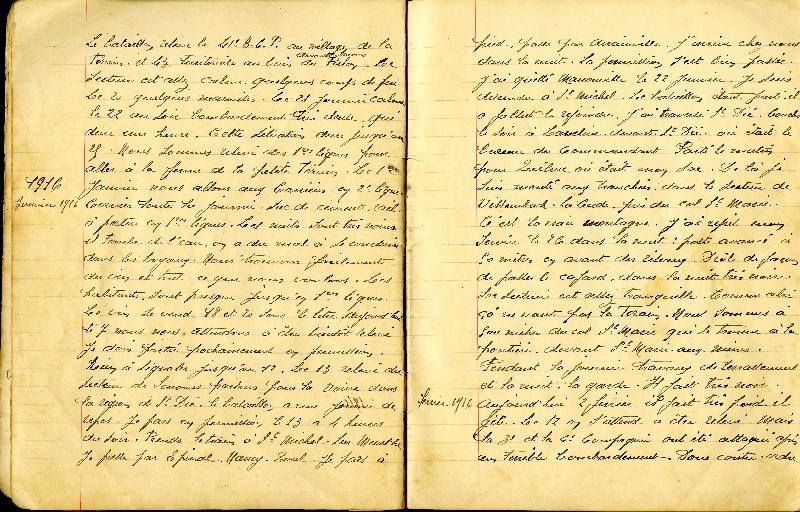 Le bataillon relève le 41e B.C.P. au village de la
et 43 territoriale au bois du
secteur est assez calme. quelques coups de feu
Le 20 quelques Le 21 journée calme
Le 22 au soir bombardement très dure, qui
dure une heure. Cette situation dure jusqu'au
29. Nous sommes relevé des 1ères lignes pour
aller à la ferme de la petite
1916
Janvier 1916
Janvier nous allons aux en 2e ligne
Corvées toute la journée. Sac de ciment,
à porter en 1ère lignes. Les nuits sont très noires
il tombe de l'eau, on a du mal à se conduire
dans les boyaux. Nous trouvons facilement
du vin et tout ce que nous voulons. Les
habitants sont presque jusqu'en 1ère lignes.
Le vin se vend 18 et 20 sous le litre, aujourd'hui
le 7 nous nous attendons à être bientôt relevé
Je dois partir prochainement en permission.
Rien à signaler jusqu'au 12. Le 13 relevé du
secteur de partons pour la Voivre dans
la région de St Dié. Le bataillon a une journée de
repos. Je pars en permission, le 13 à 4 heures
du soir. Prendre le train à St Michel sur Meurthe
Je passe par Epinal. Nancy. Toul. Je pars à
pied, passe par J'arrive chez nous
dans la nuit. La permission s'est bien passée.
J'ai quitté le 22 Janvier. Je suis
descendu à St Michel. Le bataillon étant parti il
a fallut le rejoindre. J'ai traversé St Dié. Couché
le soir à devant St Dié. où était le
Bureau du Commandant Parti le matin
pour où était mon sac. De là je
suis monté aux tranchées, dans le secteur de
près du col Ste Marie.
C'est la vraie montagne. J'ai repris mon
service le 26 dans la nuit: poste avancé à
mètres en avant des
de passer le cafard, dans la nuit très noire.
Le secteur est assez tranquille. Comme abri
ça ne vaut pas la Nous sommes à
du col Ste Marie qui se trouve à la
frontière, devant Ste Marie aux mines.
Pendant la journée travaux de terrassement
et la nuit, la garde. Il fait très noir.
février 1916
Aujourd'hui 2 février il fait très froid il
gèle. Le 12 on s'attend a être relevé. Mais
la 3e et la 6e Compagnie ont été attaqué après
un terrible bombardement. Donc contre-ordre